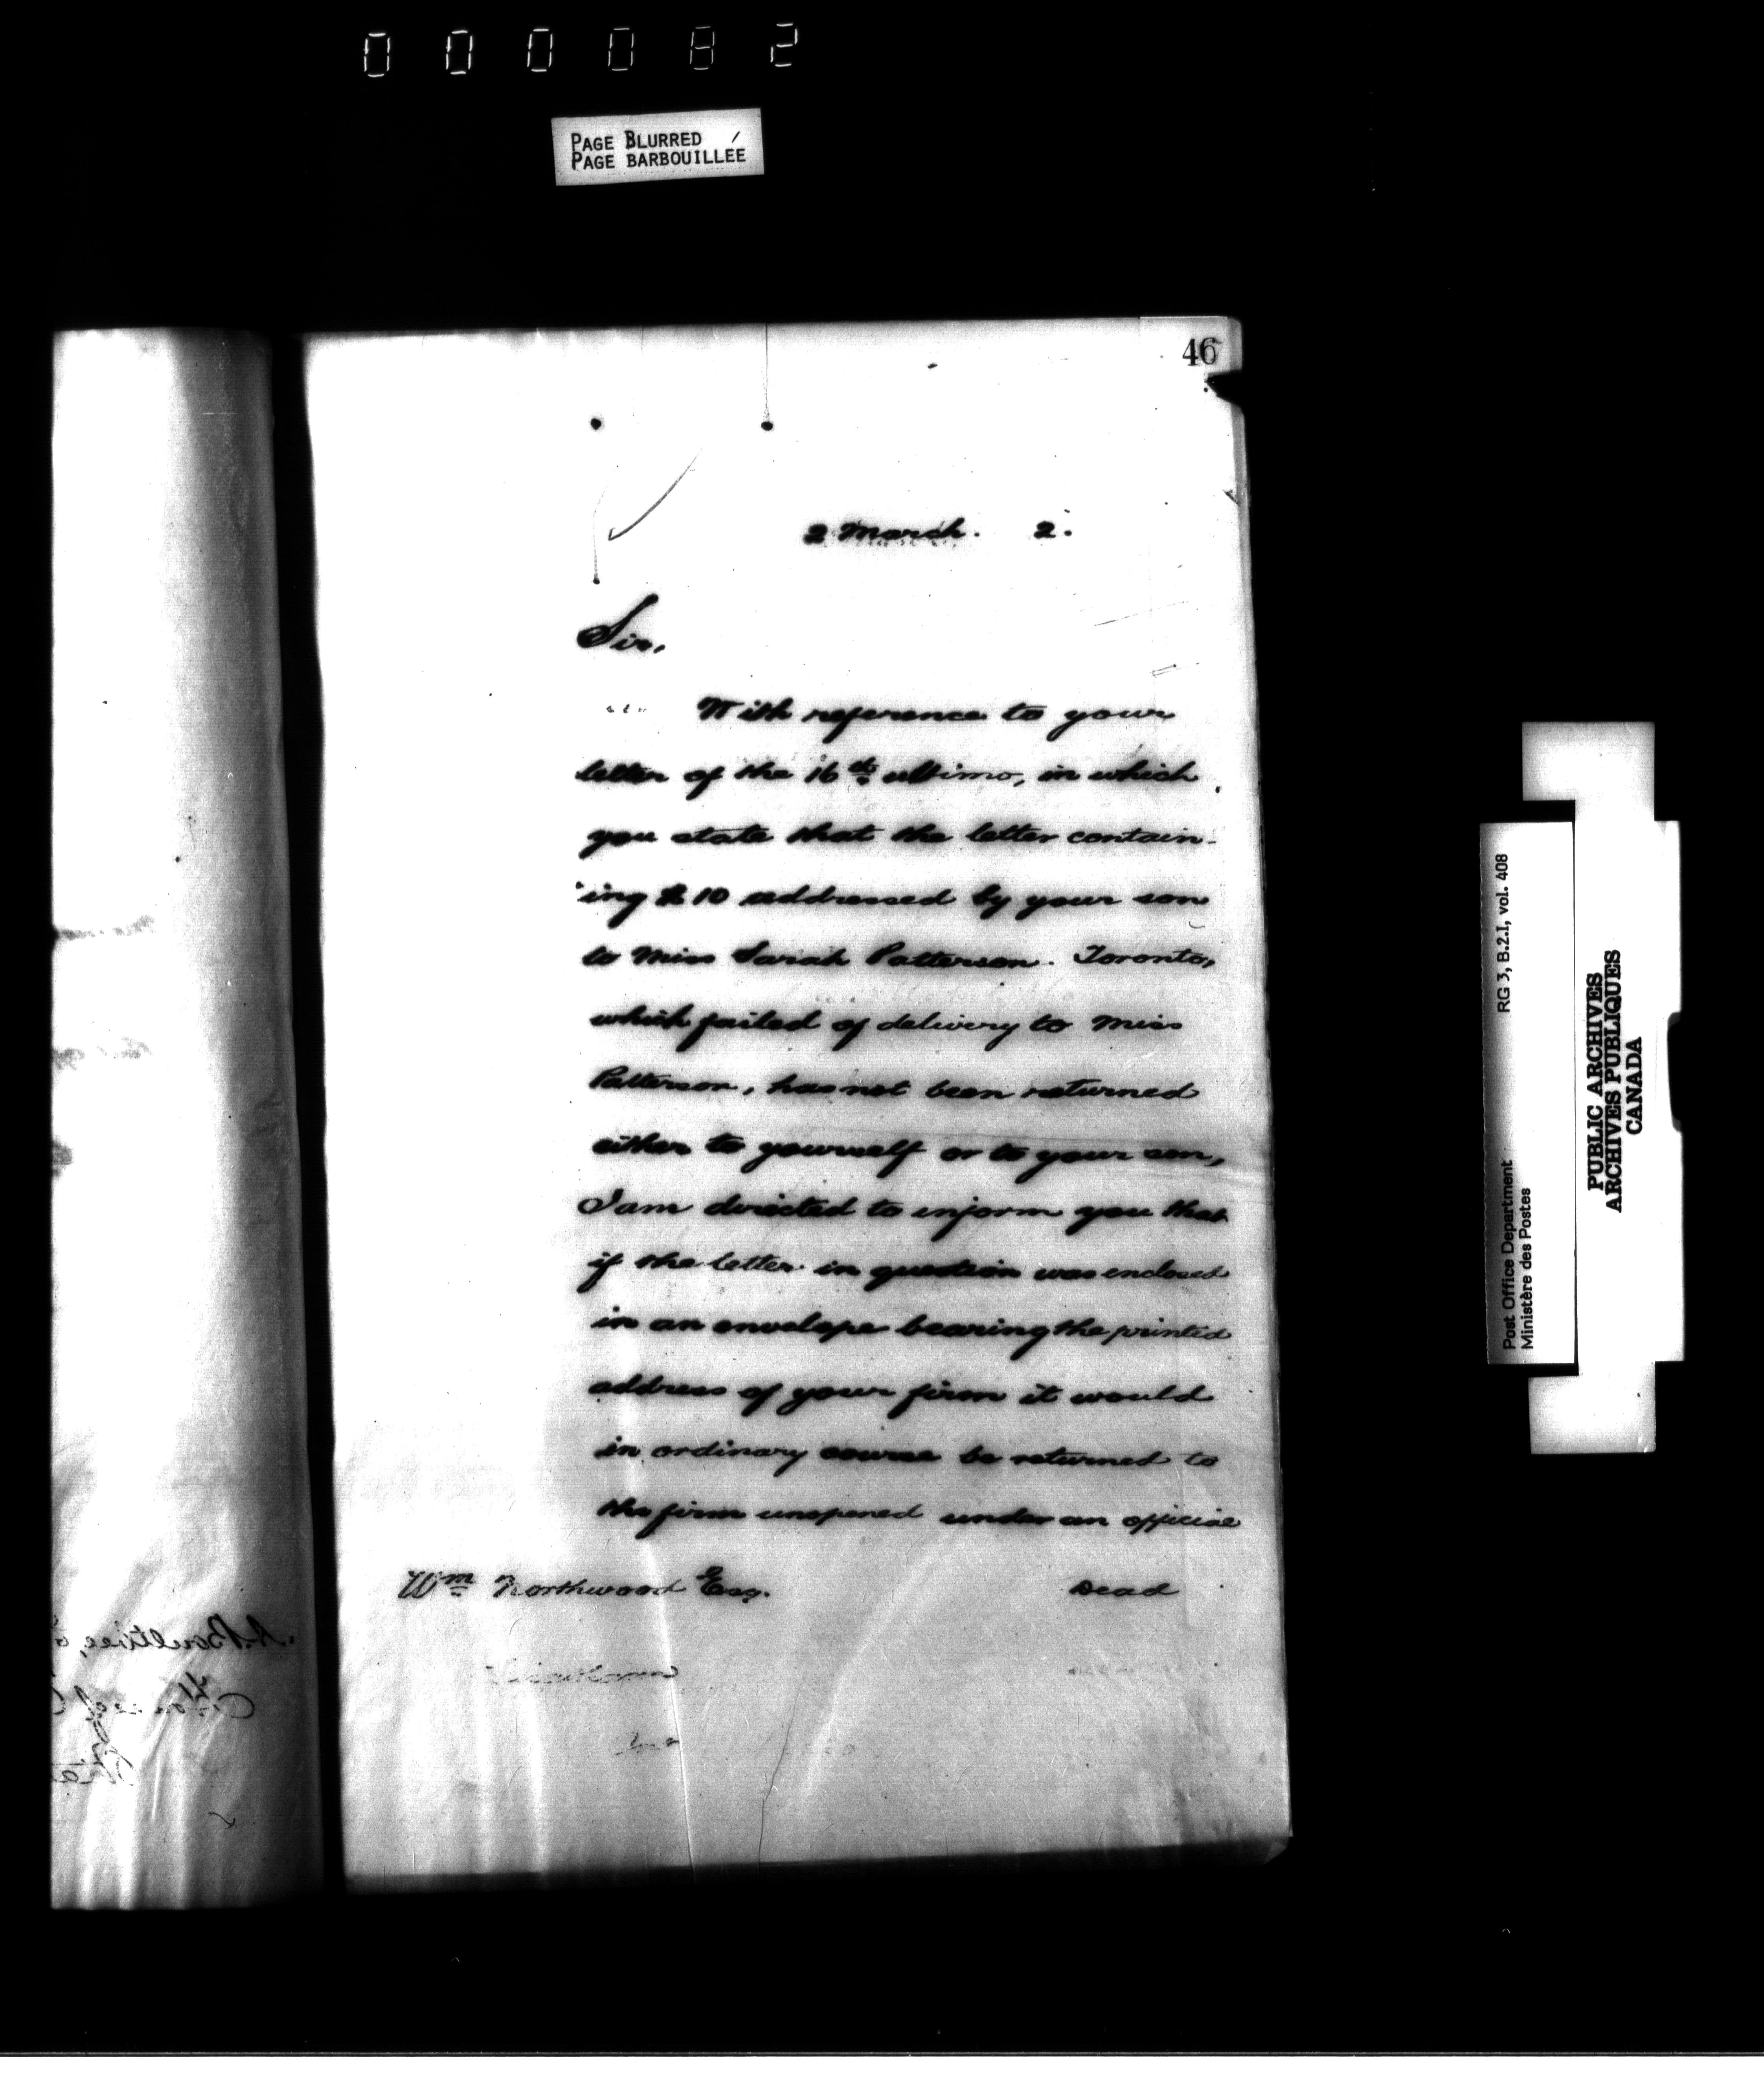 000082
PAGE BLURRED
PAGE BARBOUILLÉE
46
2 March. 2.
Sir,
With reference to your
letter of the 16th ultimo, in which
you state that the letter contain-
ing $10 addressed by your son
to Miss Sarah Patterson. Toronto,
which failed of delivery to Miss
Patterson, has not been returned
either to yourself or to your son,
I am directed to inform you that
if the letter in question was enclosed
in an envelope bearing the printed
address of your firm it would
in ordinary course be returned to
the firm unopened under an official
Wm Northwood Esq.
Dead
Chatham
Post Office Department RG 3, B.2.I, vol. 408
Ministère des Postes
PUBLIC ARCHIVES
ARCHIVES PUBLIQUES
CANADA